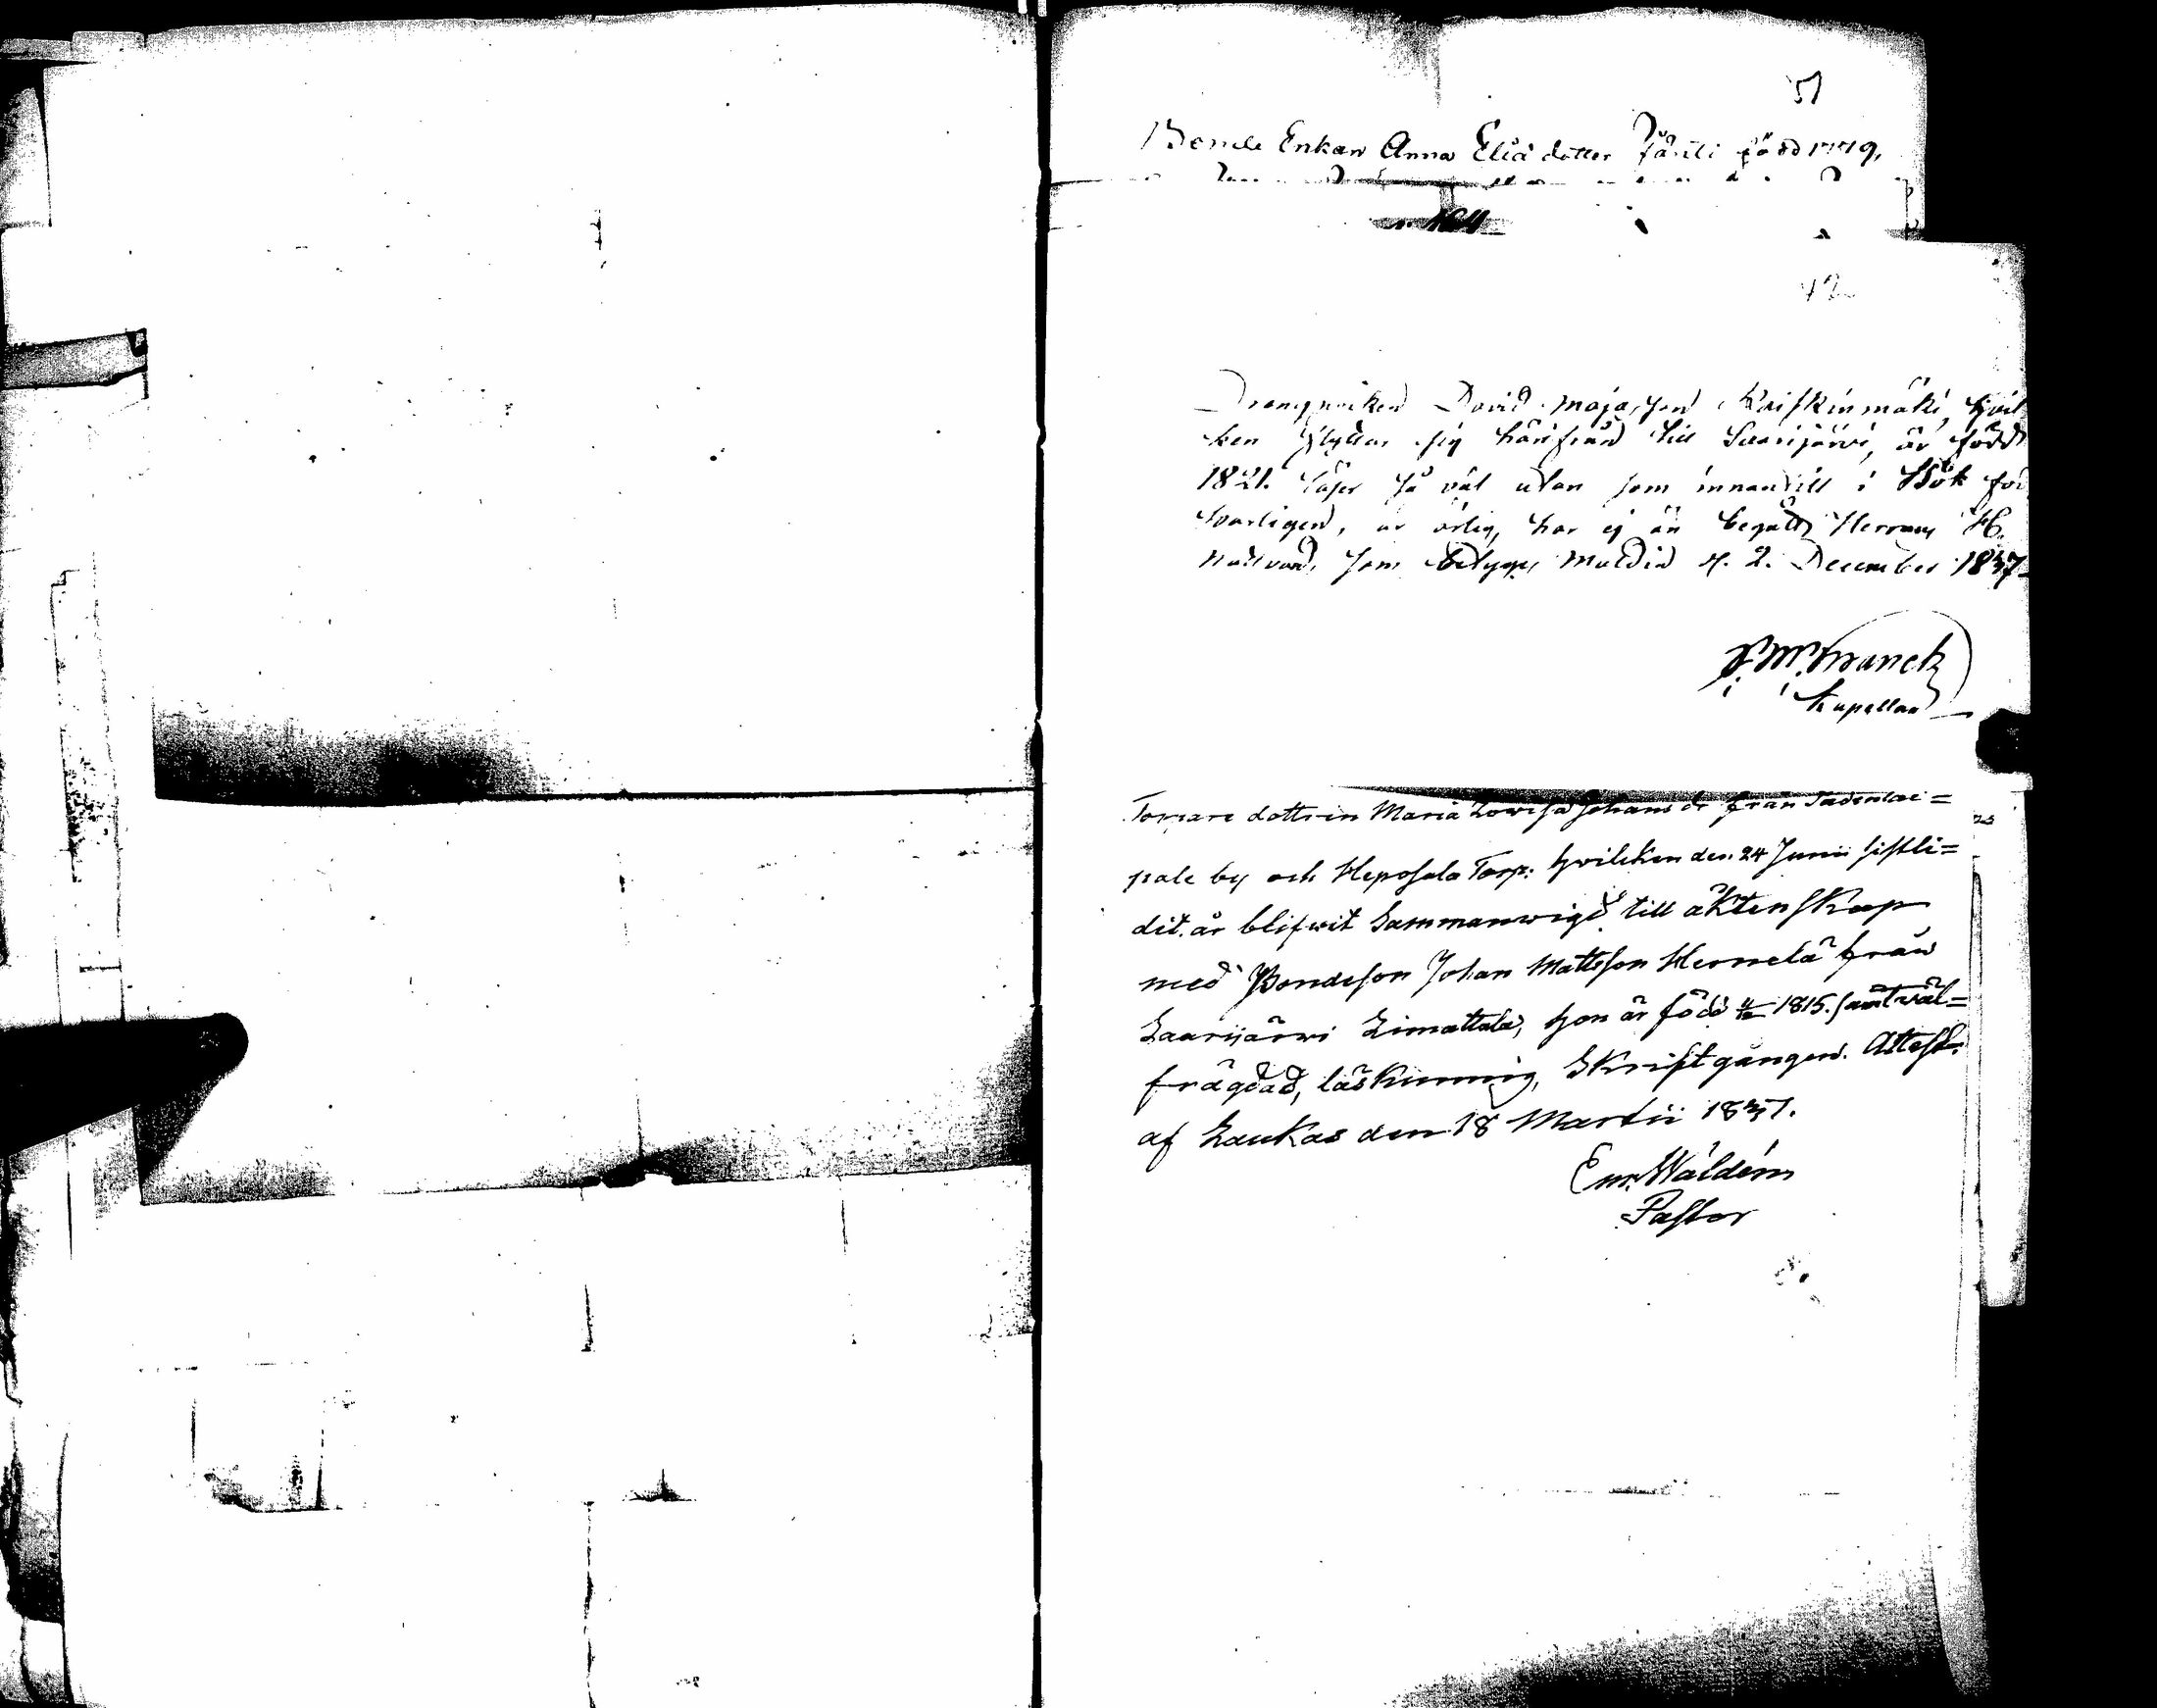 51
Bonde Enkan Anna Eliä dotter född 1779,
42
Drängpoiken David Majasson Kaifkinmäki, hvil
ken flyttar sig härifrån till Saarijärvi, är född
1821. läser så väl utan som innantill i Bok för
svarligen, är ärlig, har ej än begått Herrans H.
Nattvard, som betygas Muldia d. 2. December 1837
Kapellan
Torpare dottren Maria Lovisa Johans dr från
pale by och Heposala Torp: hvilcken den 24 Junii sistli=
dit år blifwit Sammanwigd till äktenskap
med Bondeson Johan Mattsson Hernelä från
Saarijärwi Limattala, hon är född 1815. samt väl=
frägdad, läskunnig, Skriftgången. Attest.
af Laukas den 18 Martii 1837.
Em. Waldén
Pastor